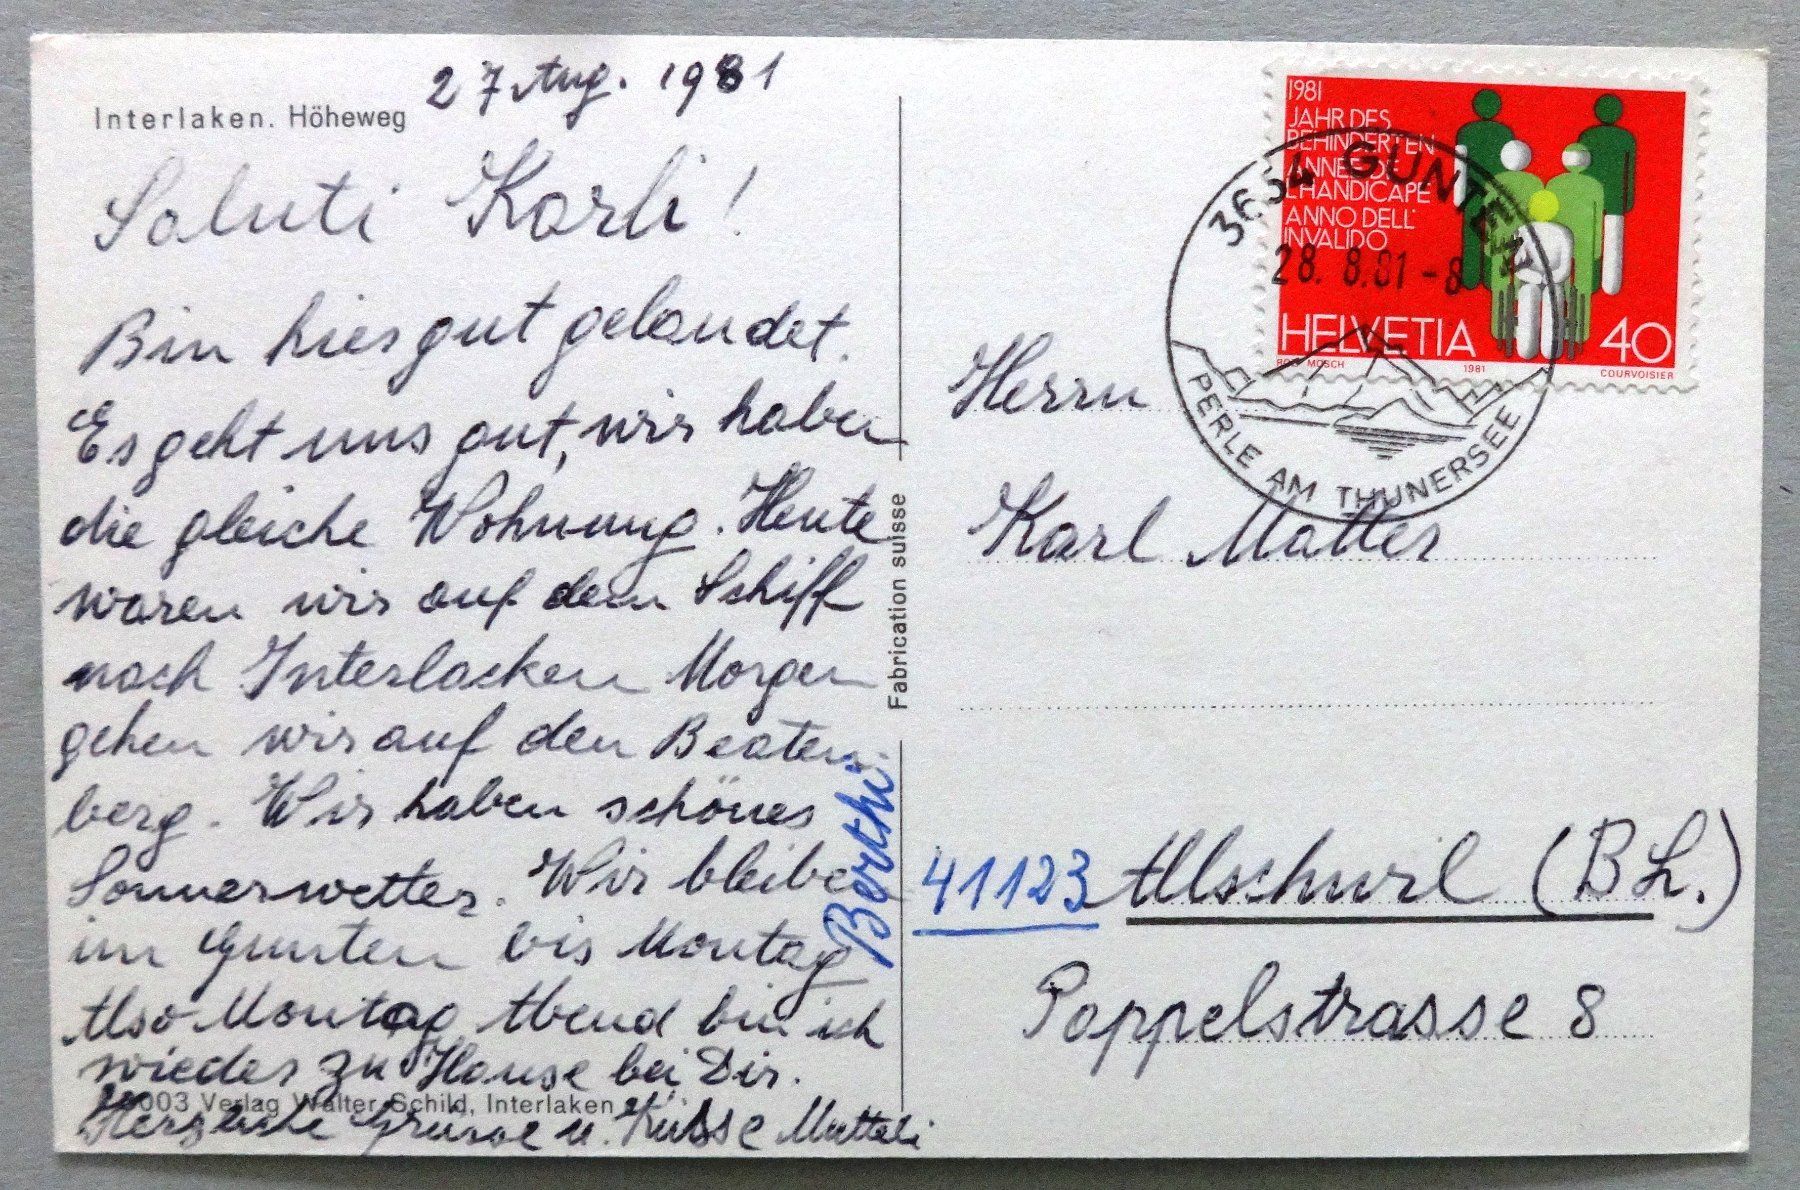 Interlaken. Höheweg
27 Aug. 1981
Saluti Karli!
Bin hier gut gelandet.
Es geht uns gut, wir haben
die gleiche Wohnung. Heute
waren wir auf dem Schiff
nach Interlacken Morgen
gehen wir auf den Beaten-
berg. Wir haben schönes
Sonnerwetter. Wir bleiben
im Gunten bis Montag
Also Montag Abend bin ich
wieder zu Hause bei Dir.
Herzliche Grüsse u. Küsse Mutteli
Berthi
Verlag Walter Schild, Interlaken
Fabrication suisse
1981
JAHR DES
BEHINDERTEN
ANNÉE DE
L'HANDICAPÉ
ANNO DELL'
INVALIDO
HELVETIA 40
MOSCH 1981 COURVOISIER
3654 GUNTEN
28. 8.81 - 8
PERLE AM THUNERSEE
Herrn
Karl Matter
41123 Allschwil (BL.)
Poppelstrasse 8